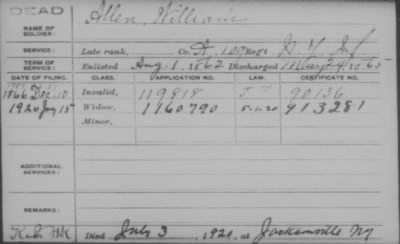 DEAD
NAME OF SOLDIER: Allen, William
SERVICE: Late rank, Co. Reg't N. Y. Inf.
TERM OF SERVICE: Enlisted Aug. 1, 1862 Discharged 1865
DATE OF FILING. CLASS. APPLICATION NO. LAW. CERTIFICATE NO.
1866 Dec. 10 Invalid, 119818 90136
1920 July 15 Widow, 1160790 913281
Minor,
ADDITIONAL SERVICES:
REMARKS:
Died July 3, 1920, at Jacksonville NY